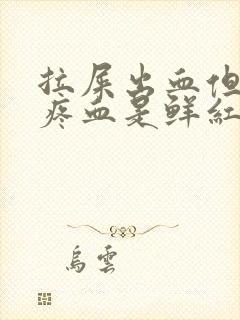 拉屎出血但
疼血是鲜紅
烏雲